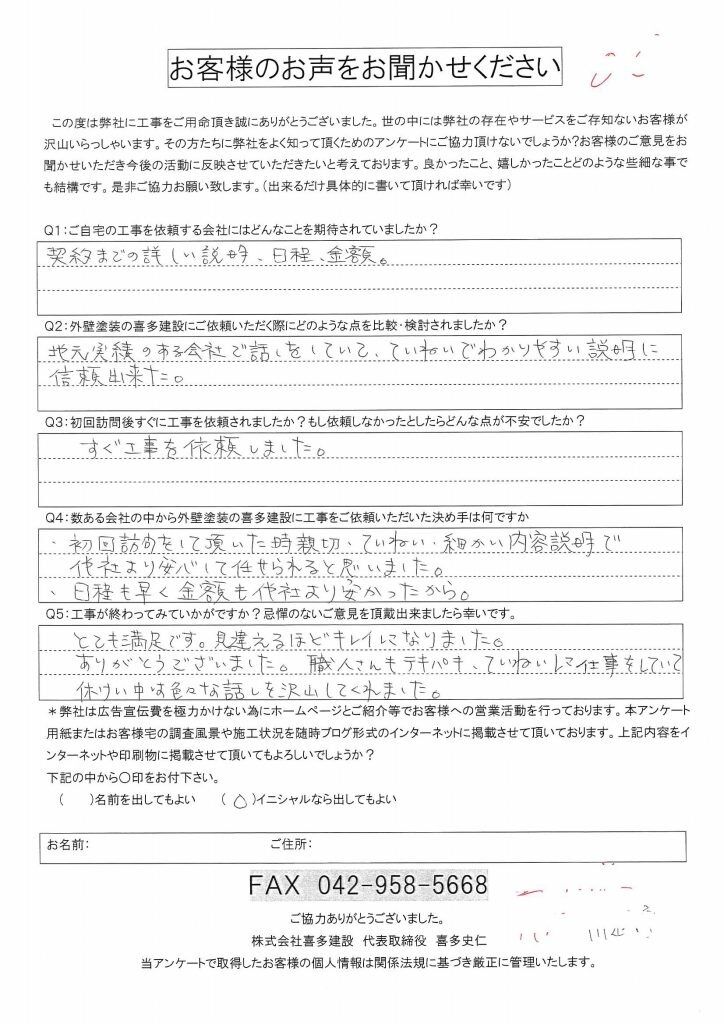 お客様のお声をお聞かせください
この度は弊社に工事をご用命頂き誠にありがとうございました。世の中には弊社の存在やサービスをご存知ないお客様が
沢山いらっしゃいます。その方たちに弊社をよく知って頂くためのアンケートにご協力頂けないでしょうか?お客様のご意見をお
聞かせいただき今後の活動に反映させていただきたいと考えております。良かったこと、嬉しかったことどのような些細な事で
も結構です。是非ご協力お願い致します。(出来るだけ具体的に書いて頂ければ幸いです)
Q1:ご自宅の工事を依頼する会社にはどんなことを期待されていましたか?
契約までの詳しい説明、日程、金額。
Q2:外壁塗装の喜多建設にご依頼いただく際にどのような点を比較・検討されましたか?
地元実績のある会社で話しをしていて、ていねいでわかりやすい説明に
信頼出来た。
Q3:初回訪問後すぐに工事を依頼されましたか?もし依頼しなかったとしたらどんな点が不安でしたか?
すぐ工事を依頼しました。
Q4:数ある会社の中から外壁塗装の喜多建設に工事をご依頼いただいた決め手は何ですか
・初回訪問をして頂いた時親切、ていねい、細かい内容説明で
他社より安心して任せられると思いました。
・日程も早く金額も他社より安かったから。
Q5:工事が終わってみていかがですか?忌憚のないご意見を頂戴出来ましたら幸いです。
とても満足です。見違えるほどキレイになりました。
ありがとうございました。職人さんもテキパキ、ていねいに仕事をしていて
休けい中は色々な話しを沢山してくれました。
*弊社は広告宣伝費を極力かけない為にホームページとご紹介等でお客様への営業活動を行っております。本アンケート
用紙またはお客様宅の調査風景や施工状況を随時ブログ形式のインターネットに掲載させて頂いております。上記内容をイ
ンターネットや印刷物に掲載させて頂いてもよろしいでしょうか?
下記の中から〇印をお付下さい。
(　)名前を出してもよい　(〇)イニシャルなら出してもよい
お名前:　ご住所:
FAX 042-958-5668
ご協力ありがとうございました。
株式会社喜多建設　代表取締役　喜多史仁
当アンケートで取得したお客様の個人情報は関係法規に基づき厳正に管理いたします。